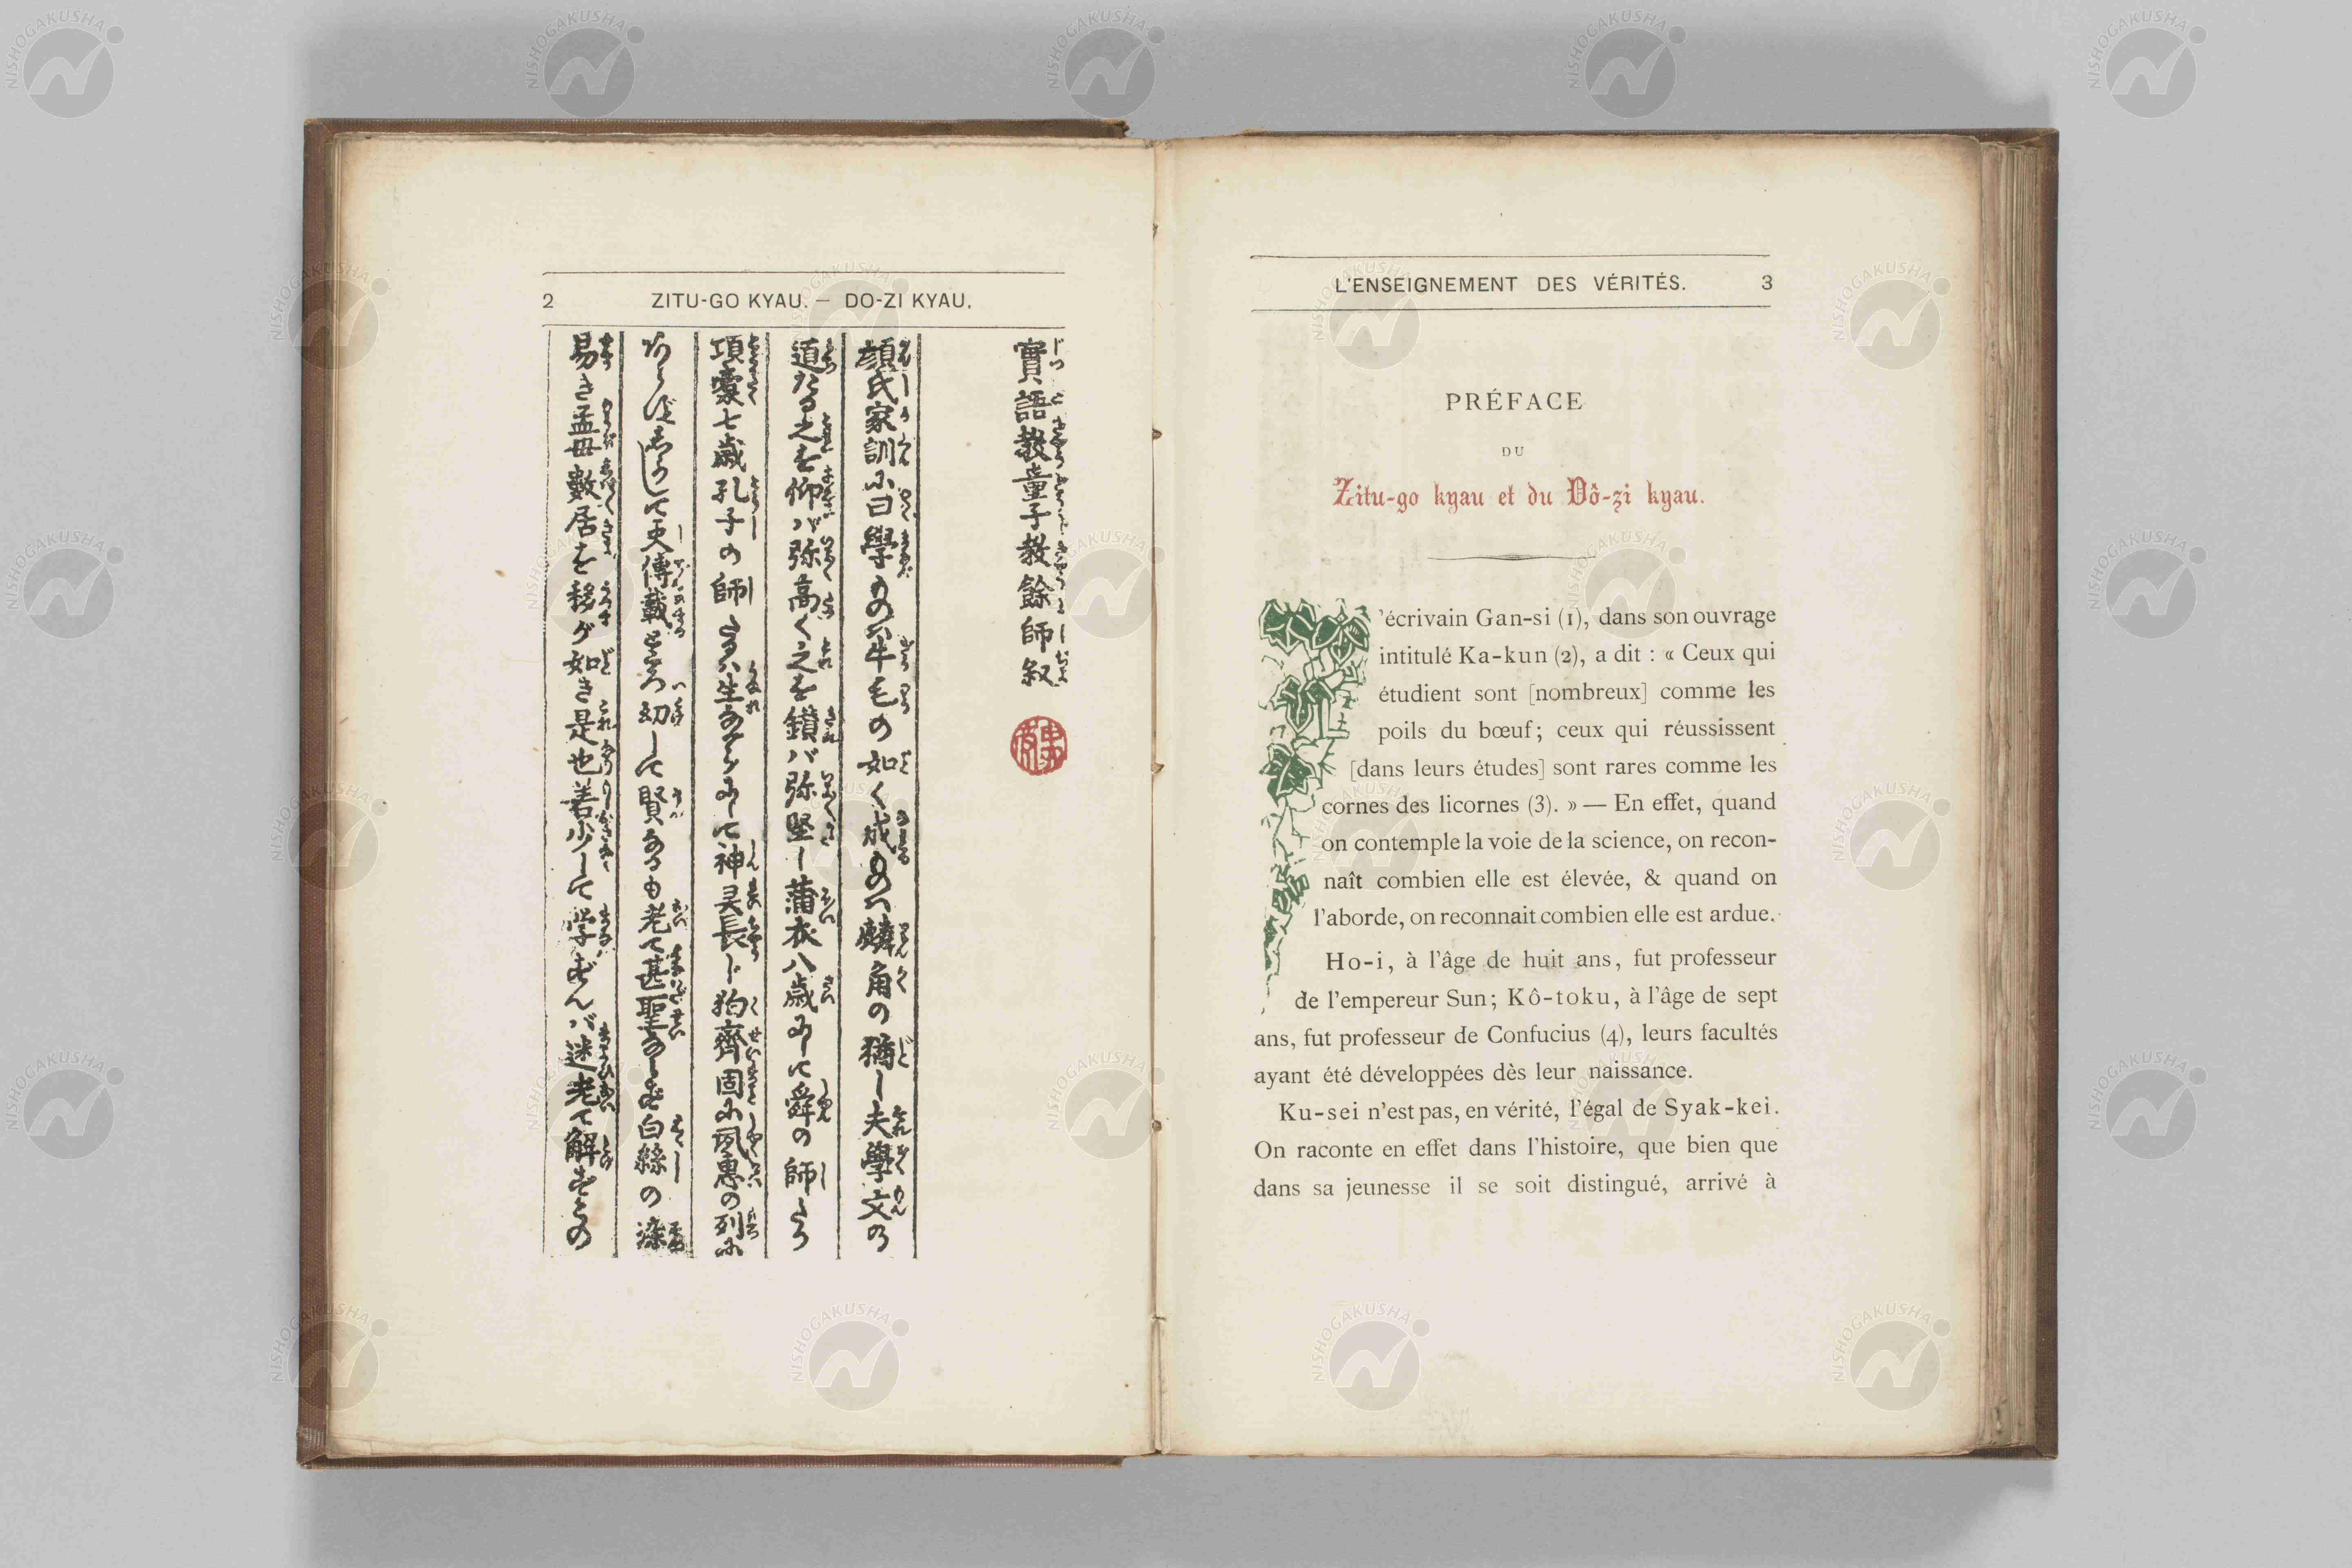 2 ZITU-GO KYAU. — DO-ZI KYAU.
實語教童子教餘師叙
顔氏家訓に曰學ものハ牛毛の如く成ものハ麟角の猶し夫學文の
道たる之を仰バ弥高く之を鑚バ弥堅し蒲衣八歳にして舜の師たり
項嚢七歳孔子の師たるハ生ながらにして神灵長じ狗齊固に夙惠の列に
して史傳載るところ幼して賢なるも老て甚聖ならず白絲の染
易き孟母數居を移すが如き是也若少して学ずんバ迷老て解ずその
L'ENSEIGNEMENT DES VÉRITÉS. 3
PRÉFACE
DU
Zitu-go kyau et du Dô-zi kyau.
L'écrivain Gan-si (1), dans son ouvrage
intitulé Ka-kun (2), a dit : « Ceux qui
étudient sont [nombreux] comme les
poils du bœuf; ceux qui réussissent
[dans leurs études] sont rares comme les
cornes des licornes (3). » — En effet, quand
on contemple la voie de la science, on recon-
naît combien elle est élevée, & quand on
l'aborde, on reconnait combien elle est ardue.
Ho-i, à l'âge de huit ans, fut professeur
de l'empereur Sun; Kô-toku, à l'âge de sept
ans, fut professeur de Confucius (4), leurs facultés
ayant été développées dès leur naissance.
Ku-sei n'est pas, en vérité, l'égal de Syak-kei.
On raconte en effet dans l'histoire, que bien que
dans sa jeunesse il se soit distingué, arrivé à
NISHOGAKUSHA